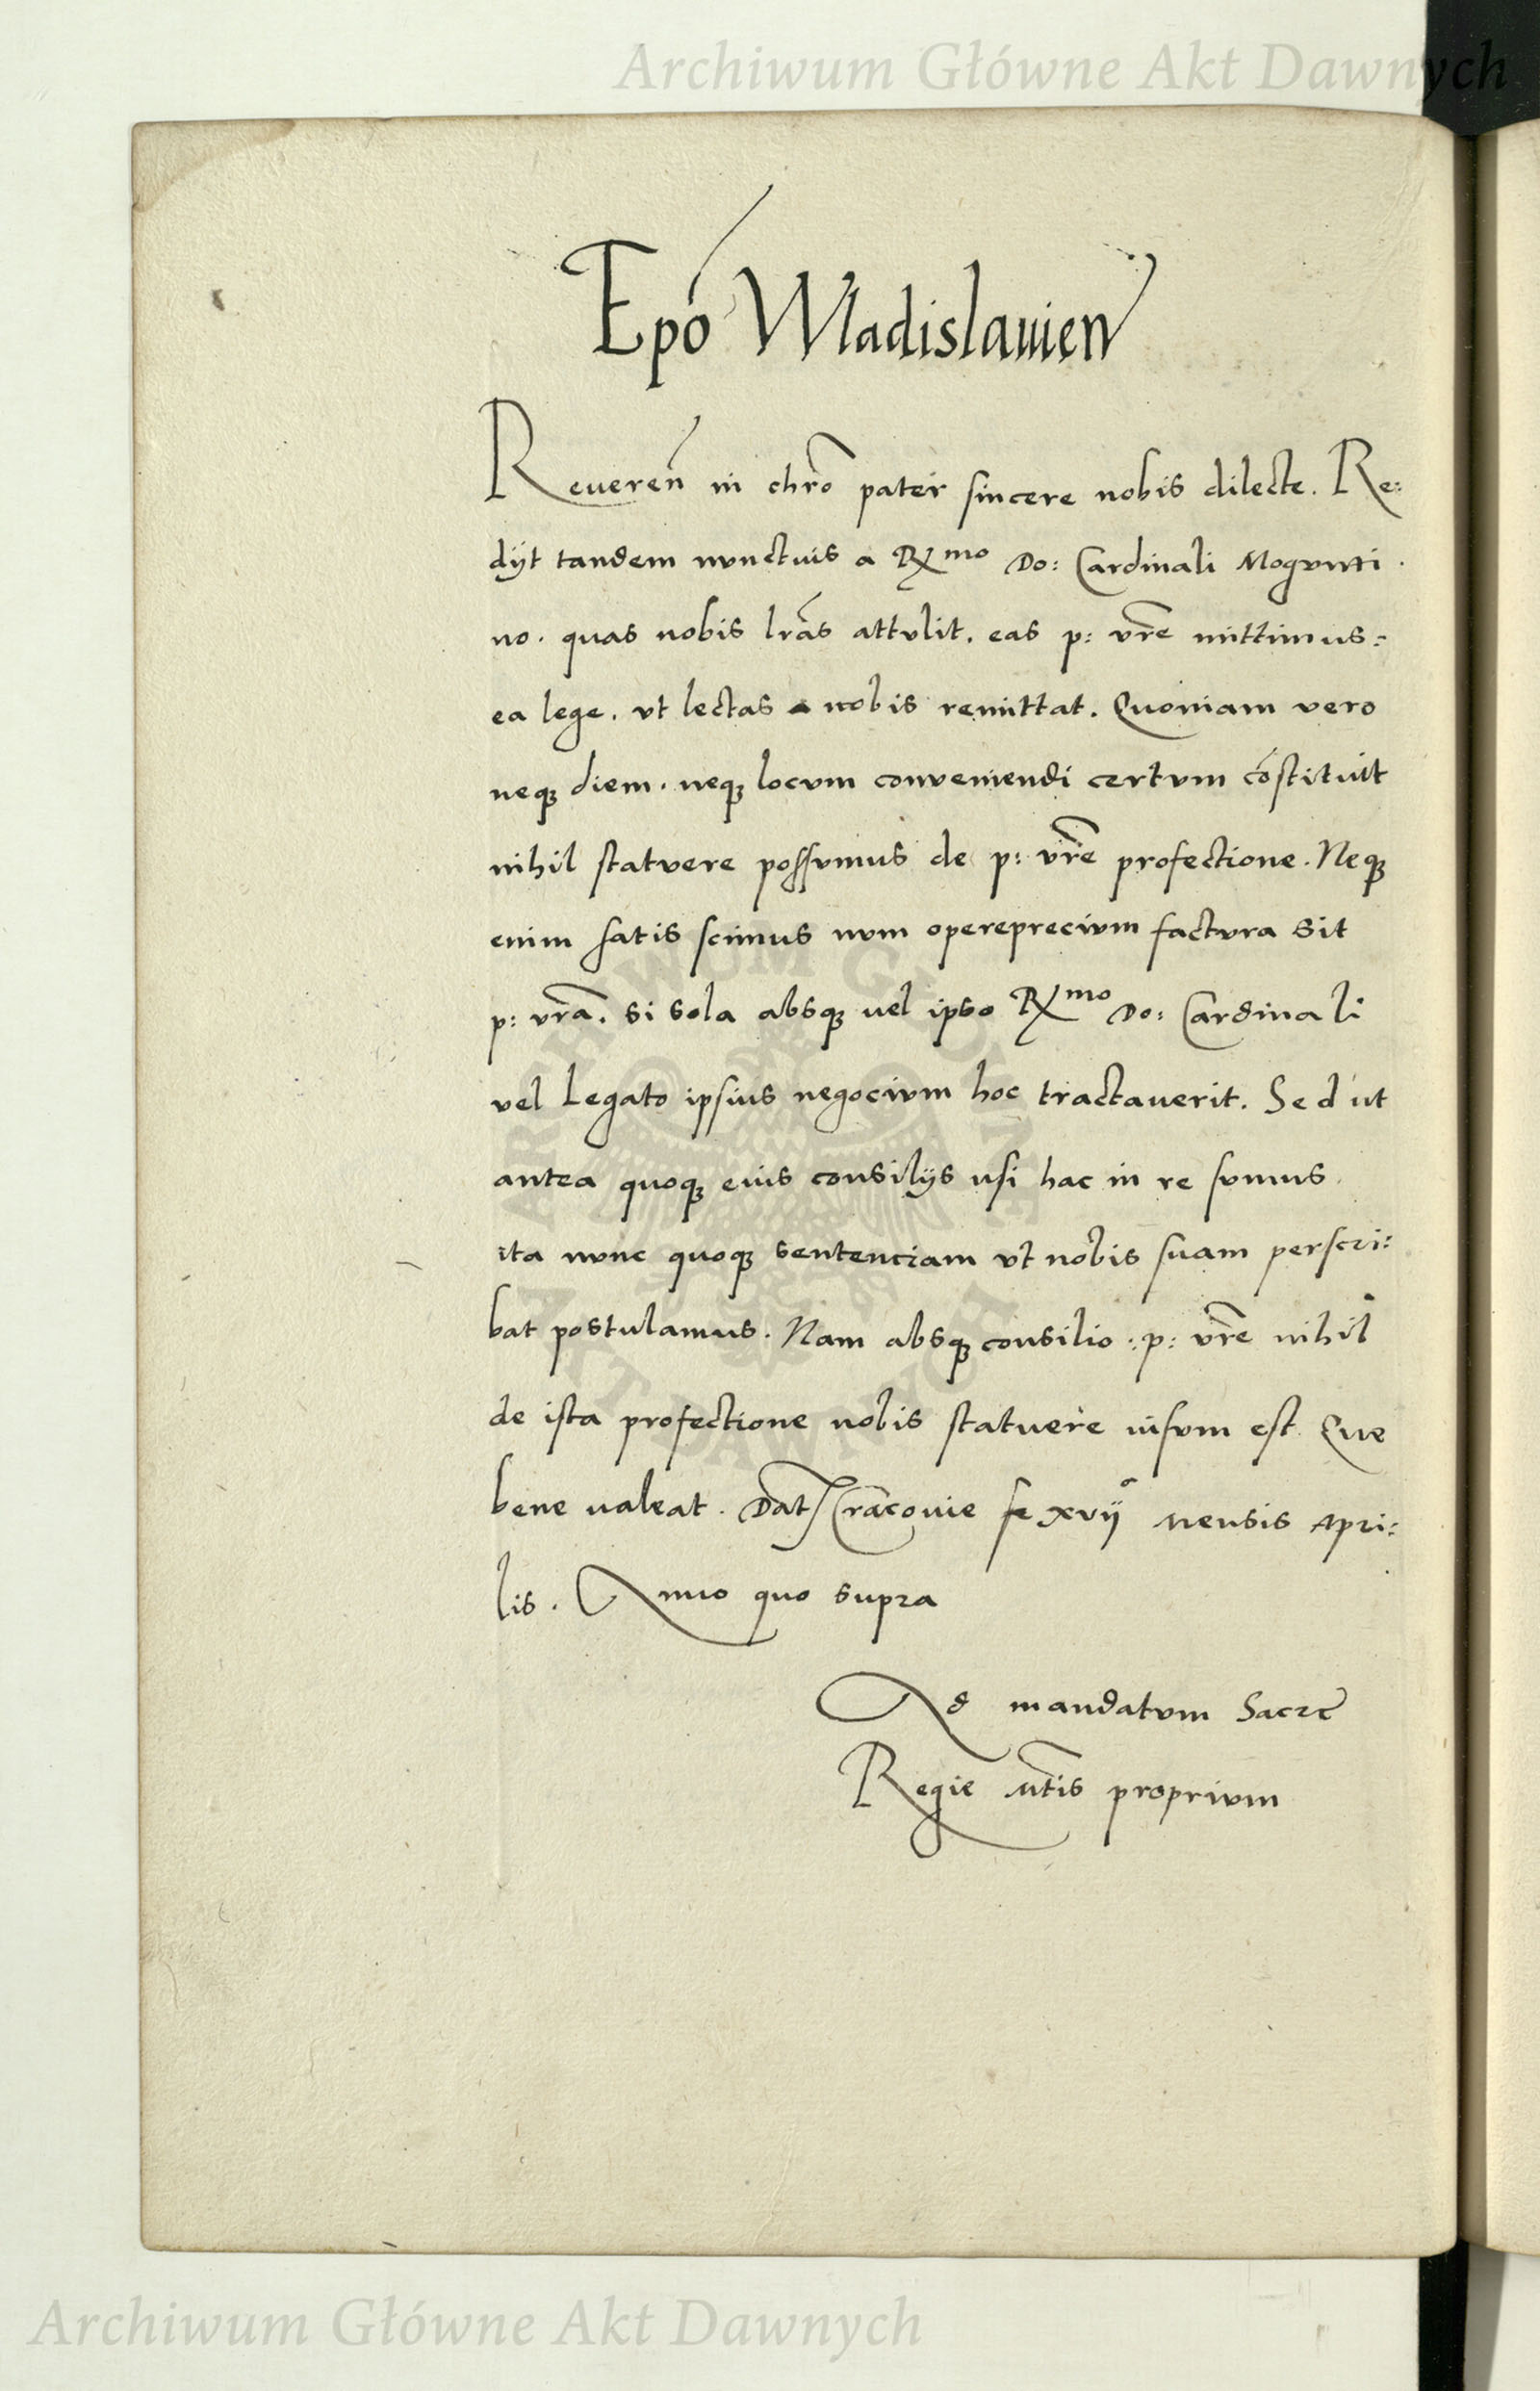 Archiwum Główne Akt Dawnych
Epō Wladislauien
Reueren̄ in chrō pater sincere nobis dilecte. Re:
dijt tandem nunctius a Rmo Do: Cardinali Mogunti
no. quas nobis lrās attulit. eas p: vrē mittimus:
ea lege. vt lectas a nobis remittat. Quoniam vero
neqꝫ diem. neqꝫ locum conueniendi certum cōstituit
nihil statuere possumus de p: vrē profectione. Neqꝫ
enim satis scimus num opereprecium factura sit
p: vrā. si sola absqꝫ vel ipso Rmo Do: Cardinali
vel Legato ipsius negocium hoc tractauerit. Sed ut
antea quoqꝫ eius consilijs usi hac in re sumus.
ita nunc quoqꝫ sentenciam vt nobis suam perscri:
bat postulamus. Nam absqꝫ consilio :p: vrē nihil
de ista profectione nobis statuere uisum est. Que
bene ualeat. Dat Cracouie fe xvij Mensis Apri:
lis. Anno quo supra
Ad mandatum Sacre
Regie Mtis proprium
ARCHIWUM GŁÓWNE
AKT DAWNYCH
Archiwum Główne Akt Dawnych